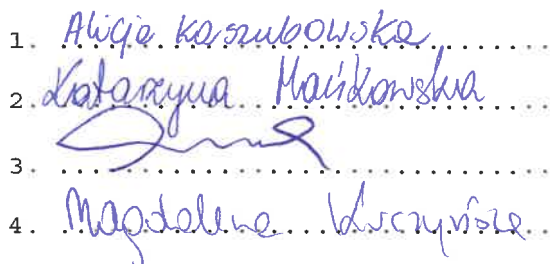 1. Alicja Kaszubowska
2. Katarzyna Maćkowska
3.
4. Magdalena